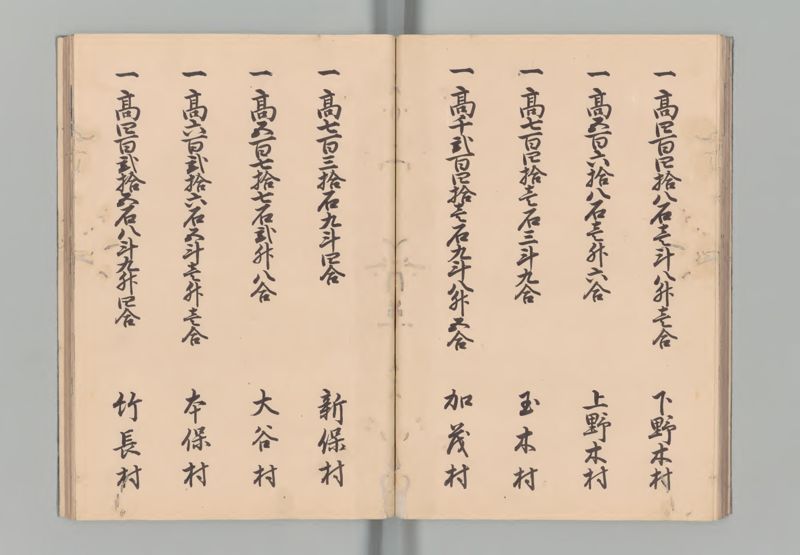 一高四百四拾八石壱斗八升壱合 下野木村
一高五百六拾八石壱升六合 上野木村
一高七百四拾壱石三斗九合 玉木村
一高千弐百四拾壱石九斗八升五合 加茂村
一高七百三拾石九斗四合 新保村
一高五百七拾七石弐升八合 大谷村
一高六百弐拾六石五斗壱升壱合 本保村
一高四百弐拾五石八斗九升四合 竹長村